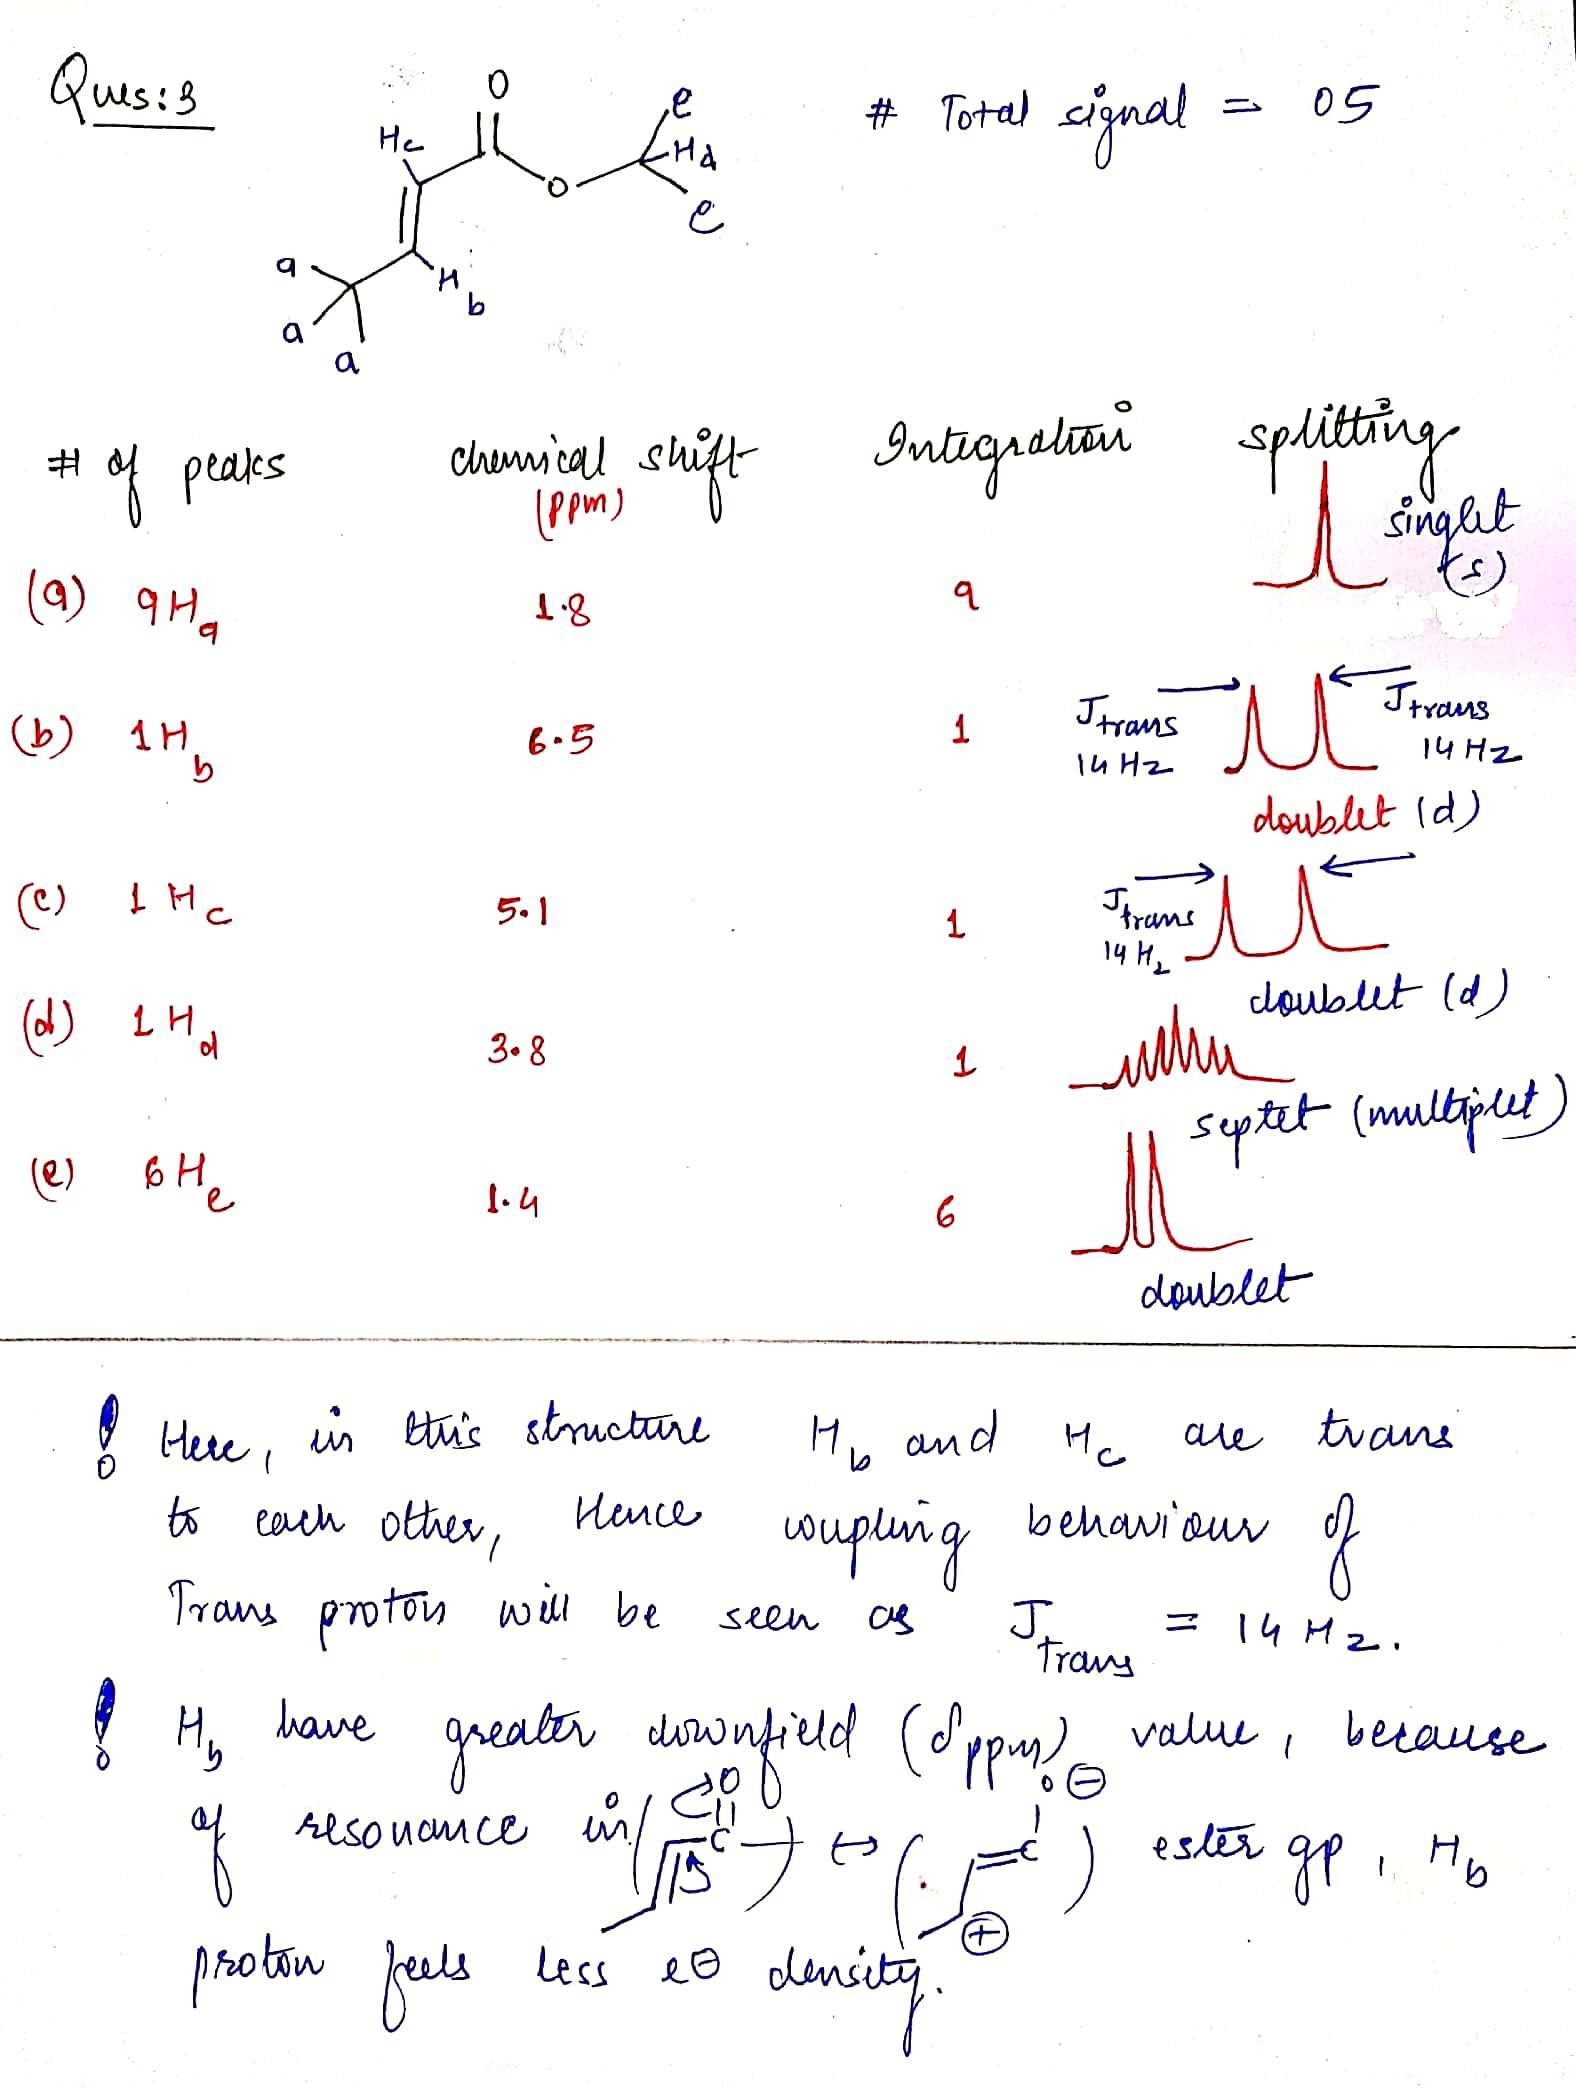 Ques:3
O
Hc
e
Hd
O
e
a
H
b
a
a
# Total signal = 05
# of peaks chemical shift Integration splitting
(ppm)
singlet
(s)
(a) 9Ha 1.8 9
(b) 1Hb 6.5 1
Jtrans
14 Hz
Jtrans
14 Hz
doublet (d)
(c) 1Hc 5.1 1
Jtrans
14 Hz
doublet (d)
(d) 1Hd 3.8 1
septet (multiplet)
(e) 6He 1.4 6
doublet
! Here, in this structure Hb and Hc are trans
to each other, Hence coupling behaviour of
Trans proton will be seen as Jtrans = 14 Hz.
! Hb have greater downfield (δppm) value, because
of resonance in (O C) ↔ (O ⊖ C ⊕) ester gp, Hb
proton feels less e⊖ density.